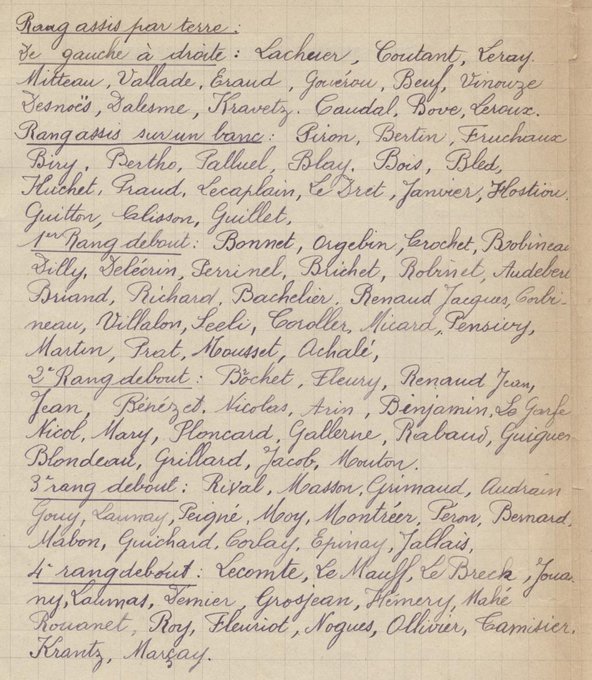 Rang assis par terre :
De gauche à droite : Lacheer, Coutant, Leray.
Mitteau, Vallade, Eraud, Gouérou, Beuf, Vinouze
Desnoës, Dalesme, Kravetz. Caudal, Bove, Leroux.
Rang assis sur un banc : Piron, Bertin, Fruchaux
Biry, Bertho, Palluel, Blay. Bois, Bled,
Huchet, Praud, Lecaplain, Le Dret, Janvier, Hostiou.
Guitton, Clisson, Guillet,
1er Rang debout : Bonnet, Orgebin, Crochet, Bobineau
Dilly, Delécrin, Perrinel, Brichet, Robinet, Audebert
Briand, Richard, Bachelier. Renaud Jacques, Corbi-
neau, Villalon, Seeli, Coroller, Micard, Pensivy,
Martin, Prat, Mousset, Achalé,
2e Rang debout : Bochet, Fleury, Renaud Jean,
Jean, Bénézet. Nicolas, Arin, Benjamin, Le Garfe
Nicol, Mary, Ploncard, Gallerne, Rabaud, Guigues
Blondeau, Grillard, Jacob, Mouton.
3e rang debout : Rival, Masson, Grimaud, Audrain
Gouy, Launay, Peigné, Moy, Montréer, Péron, Bernard,
Mabon, Guichard, Corlay, Epinay, Jallais,
4e rang debout : Lecomte, Le Mauff, Le Breck, Joua-
ny, Laumas, Demier, Grosjean, Hémery, Mahé
Rouanet, Roy, Fleuriot, Nogues, Ollivier, Camisier,
Krantz, Marçay.